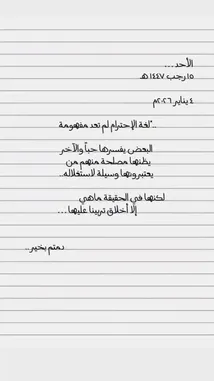 الأحد ...
١٥ رجب ١٤٤٧ هـ
٤ يناير ٢٠٢٦م
"لغة الإحترام لم تعد مفهومة..
البعض يفسرها حباً والآخر
يظنها مصلحة منهم من
يعتبرونها وسيلة لاستغلاله..
لكنها في الحقيقة ماهي
إلا أخلاق تربينا عليها...
دمتم بخير..